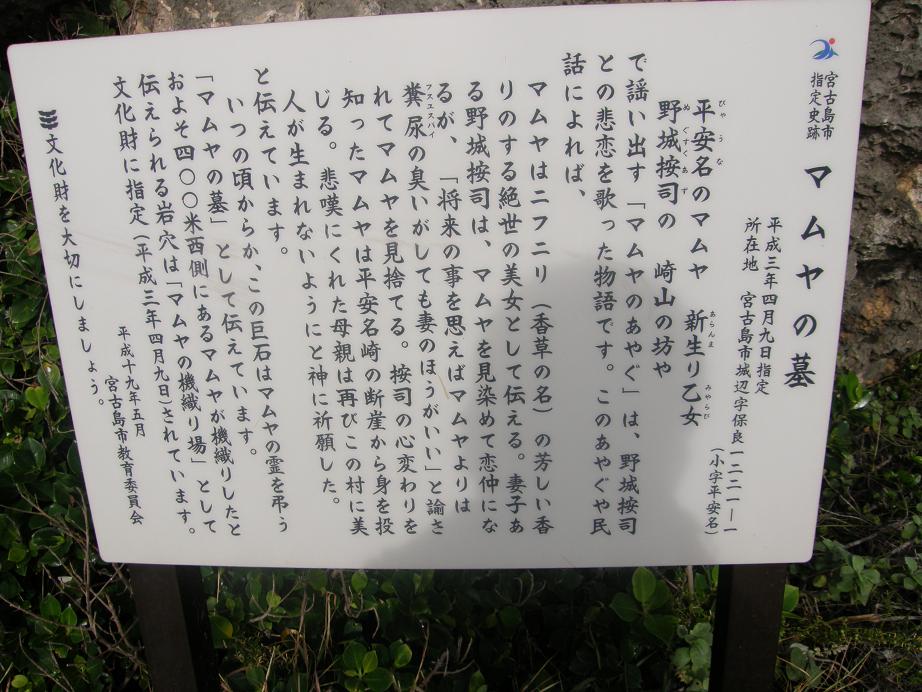 宮古島市
指定史跡
マムヤの墓
平成三年四月九日指定
所在地　宮古島市城辺字保良一二二一―一
（小字平安名）
平安名のマムヤ　新生り乙女
びゃうな
あらんま
みやらび
野城按司の　崎山の坊や
ぬぐすくあず
で謡い出す「マムヤのあやぐ」は、野城按司
との悲恋を歌った物語です。このあやぐや民
話によれば、
マムヤはニフニリ（香草の名）の芳しい香
りのする絶世の美女として伝える。妻子あ
る野城按司は、マムヤを見染めて恋仲にな
るが、「将来の事を思えばマムヤよりは
糞尿の臭いがしても妻のほうがいい」と諭さ
フスユスバイ
れてマムヤを見捨てる。按司の心変わりを
知ったマムヤは平安名崎の断崖から身を投
じる。悲嘆にくれた母親は再びこの村に美
人が生まれないようにと神に祈願した。
と伝えています。
いつの頃からか、この巨石はマムヤの霊を弔う
「マムヤの墓」として伝えています。
およそ四〇〇米西側にあるマムヤが機織りしたと
伝えられる岩穴は「マムヤの機織り場」として
文化財に指定（平成三年四月九日）されています。
平成十九年五月
宮古島市教育委員会
文化財を大切にしましょう。